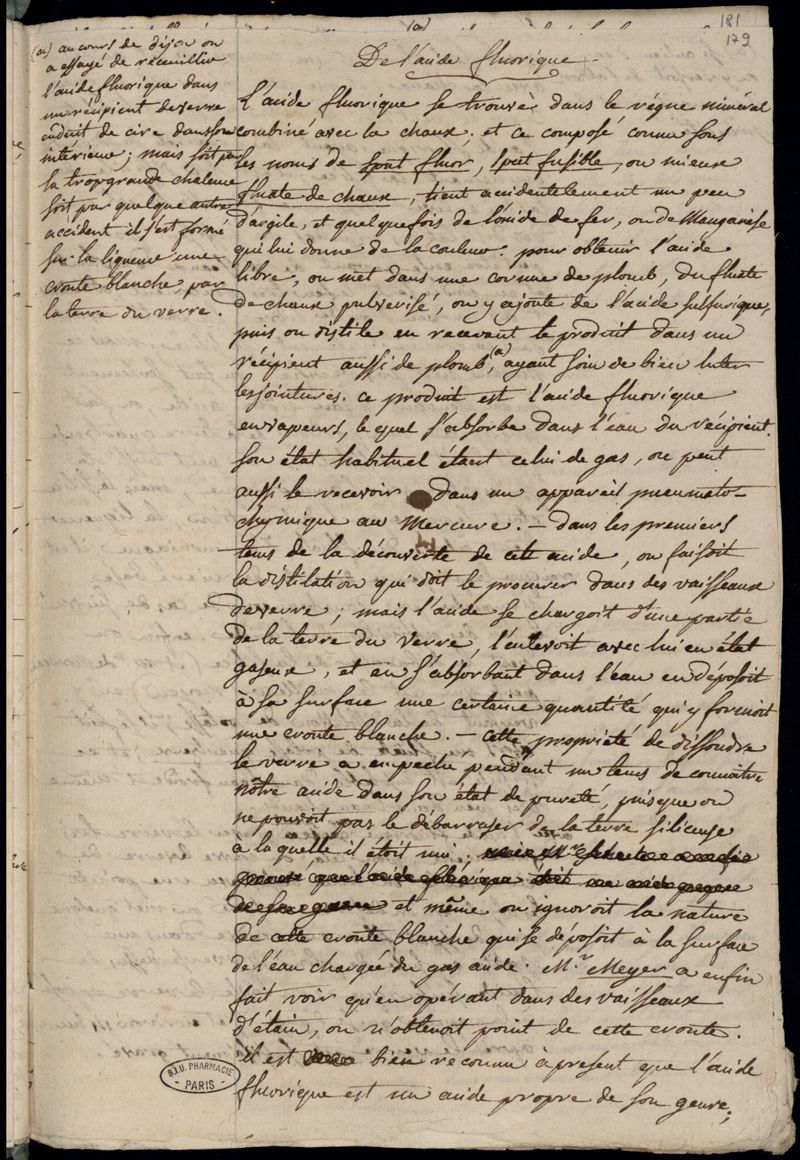 181
179
(a) au cours de dijon on
a essayé de recueillir
l'acide fluorique dans
un récipient de verre
enduit de cire dans son
intérieur; mais soit par
la trop grande chaleur
soit par quelque autre
accident il s'est formé
sur la liqueur une
croute blanche, par
la terre du verre.
De l'acide fluorique.
L'acide fluorique se trouve dans le règne minéral
combiné avec la chaux; et ce composé connu sous
les noms de spat fluor, spat fusible, ou mieux
fluate de chaux, tient accidentelement un peu
d'argile, et quelquefois de l'oxide de fer, ou de Manganèse
qui lui donne de la couleur. pour obtenir l'acide
libre, on met dans une cornue de plomb, du fluate
de chaux pulverisé, on y ajoute de l'acide sulfurique,
puis on distile en recevant le produit dans un
récipient aussi de plomb,(a) ayant soin de bien luter
les jointures. ce produit est l'acide fluorique
en vapeurs, le quel s'absorbe dans l'eau du récipient.
son état habituel étant celui de gas, on peut
aussi le recevoir dans un appareil pneumato-
chymique au Mercure. — dans les premiers
tems de la découverte de cet acide, on faisoit
la distilation qui doit le procurer dans des vaisseaux
de verre; mais l'acide se chargoit d'une partie
de la terre du verre, l'enlevoit avec lui en état
gaseux, et en s'absorbant dans l'eau en déposoit
à sa surface une certaine quantité qui y formoit
une croute blanche. — cette propriété de dissoudre
le verre a empeché pendant un tems de connaître
nôtre acide dans son état de pureté, puisque on
ne pouvoit pas le débarrasser de la terre siliceuse
à la quelle il étoit uni.
et même on ignoroit la nature
de cette croute blanche qui se déposoit à la surface
de l'eau chargée du gas acide. Mr. Meyer a enfin
fait voir qu'en opérant dans des vaisseaux
d'étain, on n'obtenoit point de cette croute.
il est bien reconnu àpresent que l'acide
fluorique est un acide propre de son genre;
B.I.U. PHARMACIE
PARIS